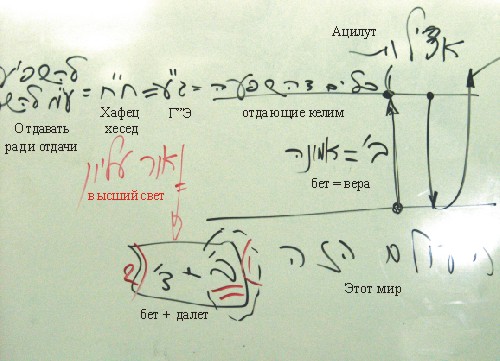 Ацилут
אצילות
להשפיע
ע"מ להש = ח"ח = ג"ע = כלים דהשפעה
Отдавать
ради отдачи
Хафец
хесед
Г"Э
отдающие келим
ב' = אמונה
бет = вера
אור עליון
высший свет
ב' + ד'
бет + далет
עולם הזה
Этот мир